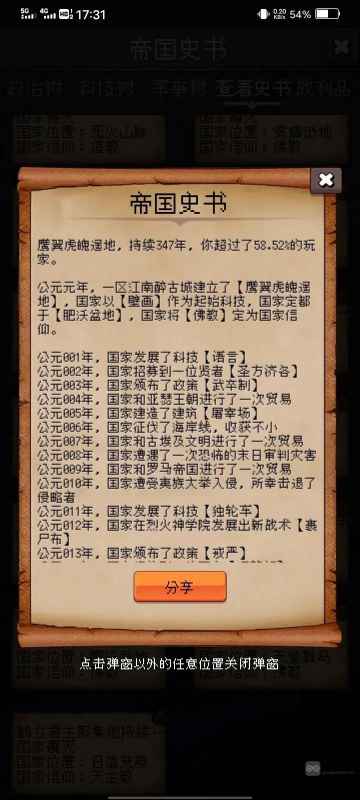 5G 4G HD 17:31 0.20 KB/s 54%
帝国史书
政治树 科技树 军事树 查看史书 战利品
国家信仰：道教 国家信仰：佛教
帝国史书
鹰翼虎魄遥地，持续347年，你超过了58.52%的玩
家。
公元元年，一区江南醉古城建立了【鹰翼虎魄遥
地】，国家以【壁画】作为起始科技，国家定都
于【肥沃盆地】，国家将【佛教】定为国家信
仰。
公元001年，国家发展了科技【语言】
公元002年，国家招募到一位贤者【圣方济各】
公元003年，国家颁布了政策【武卒制】
公元004年，国家和亚瑟王朝进行了一次贸易
公元005年，国家建造了建筑【屠宰场】
公元006年，国家征伐了海岸线，收获不小
公元007年，国家和古埃及文明进行了一次贸易
公元008年，国家遭遇了一次恐怖的末日审判灾害
公元009年，国家和罗马帝国进行了一次贸易
公元010年，国家遭受夷族大举入侵，所幸击退了
侵略者
公元011年，国家发展了科技【独轮车】
公元012年，国家在烈火神学院发展出新战术【裹
尸布】
公元013年，国家颁布了政策【戒严】
分享
点击弹窗以外的任意位置关闭弹窗
国家信仰：天主教